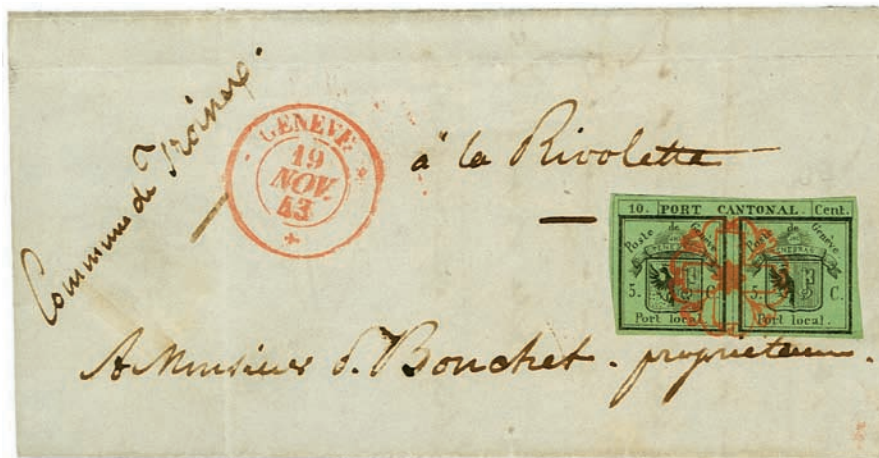 Commune de Troinex.
GENEVE
19
NOV
43
à la Rivolette
10. PORT CANTONAL. Cent.
Poste de Genève
POST TENEBRAS LUX
5. C.
Port local.
Poste de Genève
5. C.
Port local.
A Monsieur d. Bouchet. propriétaire.